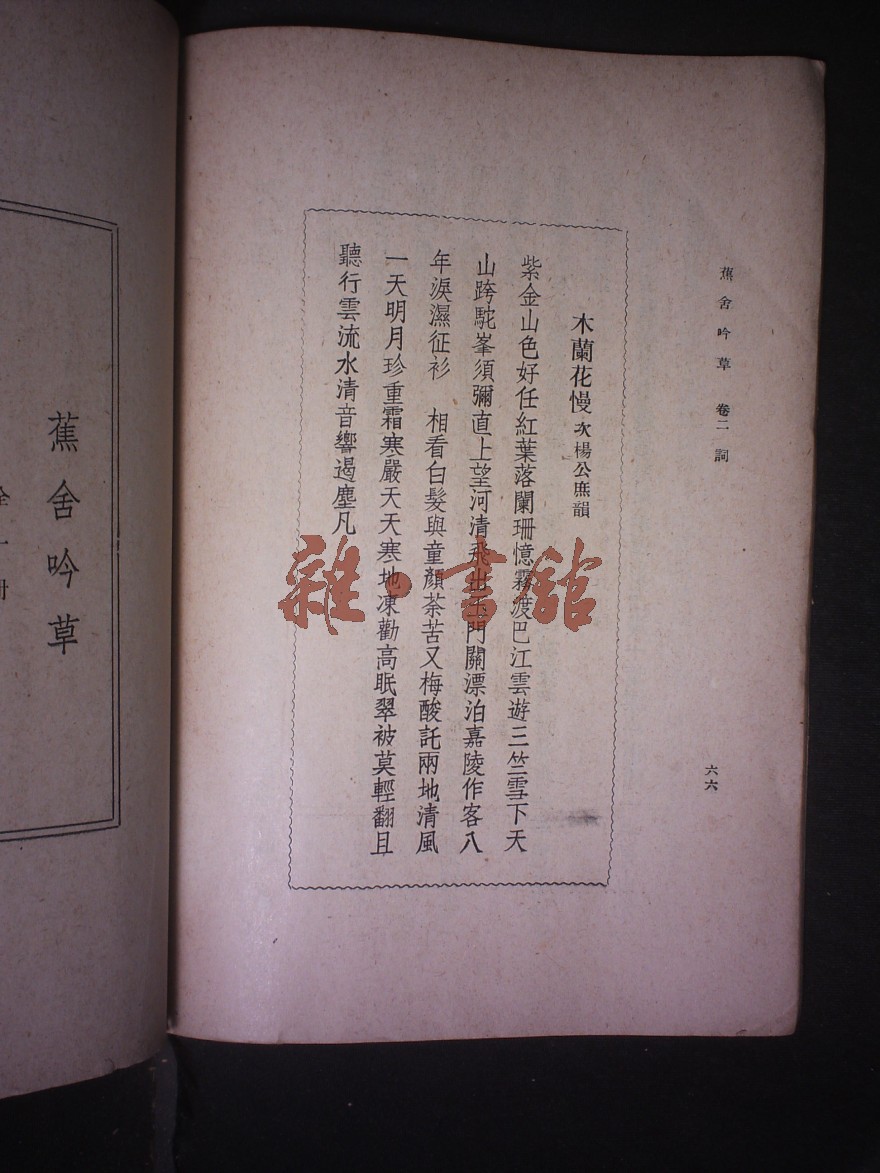 蕉舍吟草 卷二 詞
六六
木蘭花慢 次楊公庶韻
紫金山色好任紅葉落闌珊憶霧渡巴江雲遊三竺雪下天
山跨駝峯須彌直上望河清飛出玉門關漂泊嘉陵作客八
年淚濕征衫 相看白髮與童顏荼苦又梅酸託兩地清風
一天明月珍重霜寒嚴天天寒地凍勸高眠翠被莫輕翻且
聽行雲流水清音響遏塵凡
雜·書館
蕉舍吟草
全一冊